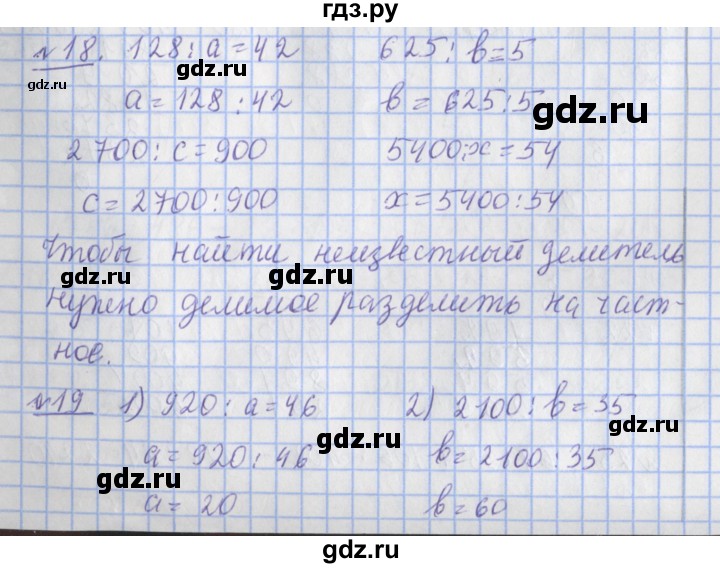 гдз.ру
№18. 128 : a = 42 625 : b = 5
gdz.ru gdz.ru
a = 128 : 42 b = 625 : 5
gdz.ru
2 700 : c = 900 5400 : x = 54
c = 2700 : 900 x = 5400 : 54
Чтобы найти неизвестный делитель
gdz.ru gdz.ru
нужно делимое разделить на част-
ное.
gdz.ru
№19 1) 920 : a = 46 2) 2100 : b = 35
gdz.ru gdz.ru
a = 920 : 46 b = 2100 : 35
gdz.ru
a = 20 b = 60
gdz.ru
gdz.ru